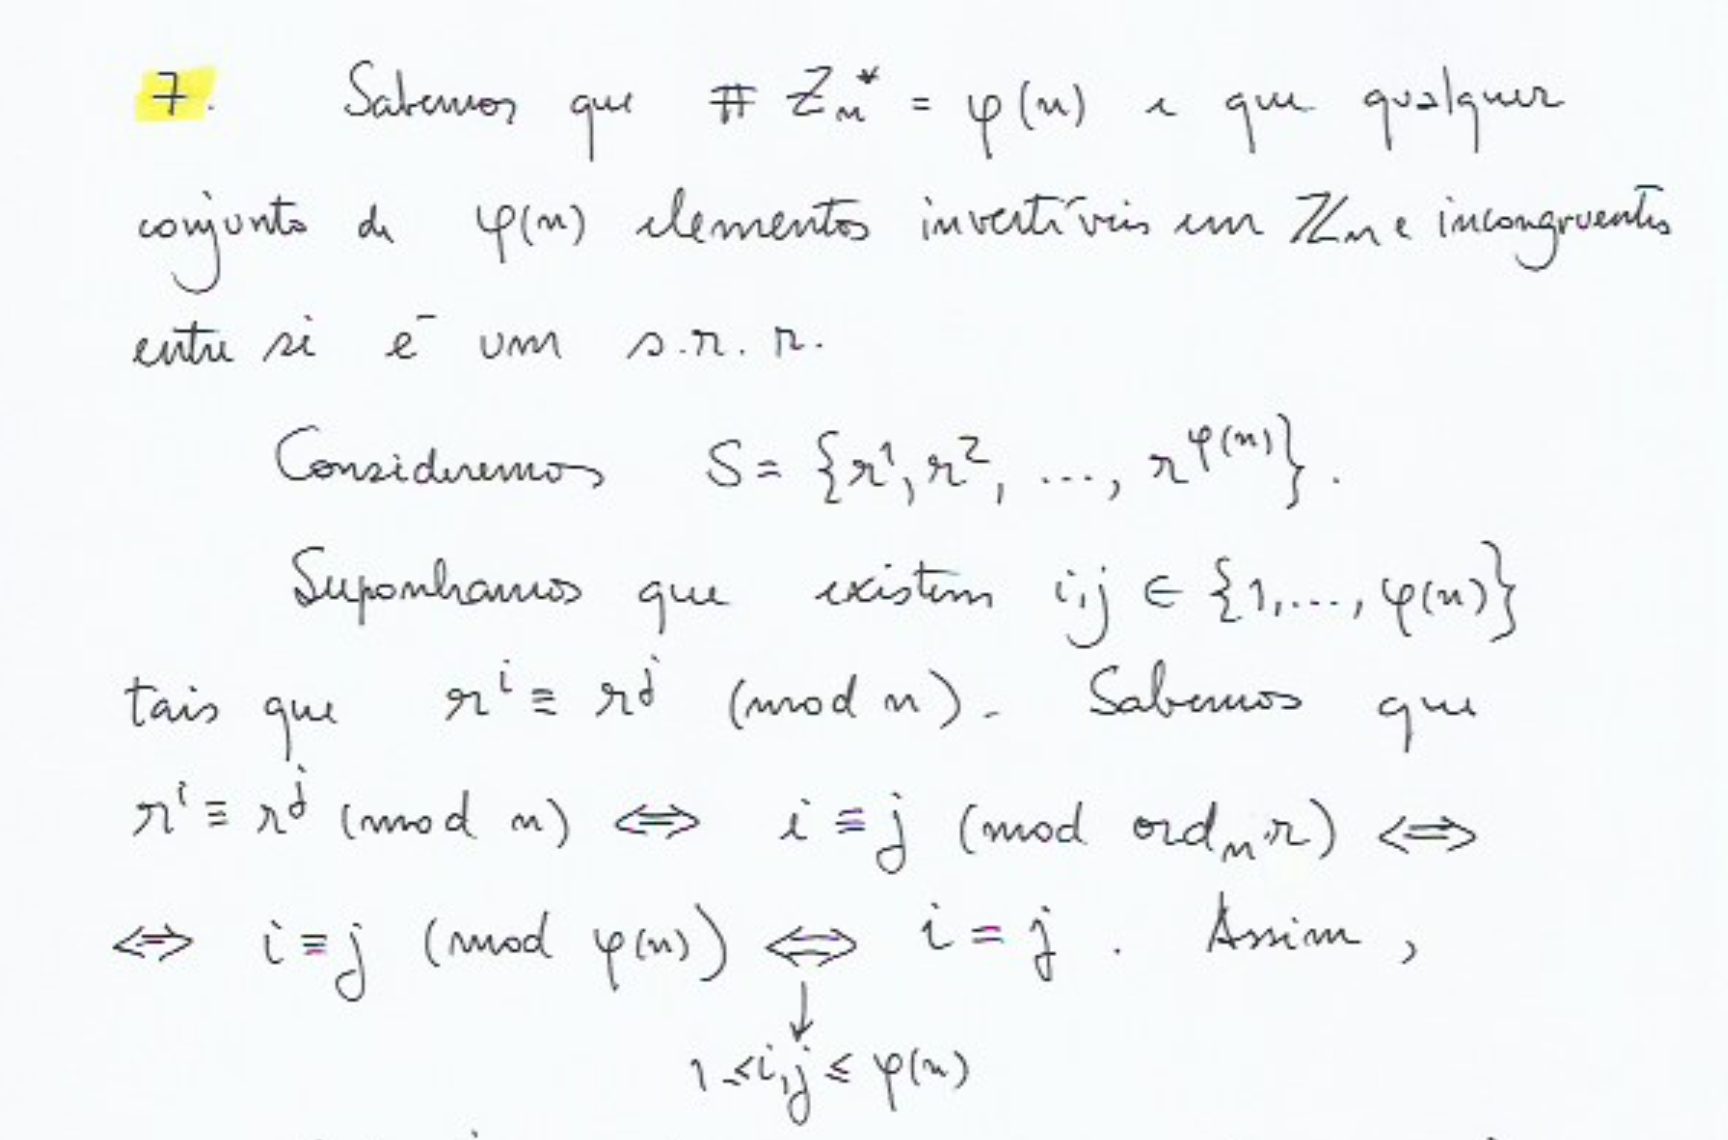 7. Sabemos que # Zn* = φ(n) e que qualquer
conjunto de φ(n) elementos invertíveis em ℤn e incongruentes
entre si é um s.r.r.
Consideremos S = {r¹, r², ..., r^φ(n)}.
Suponhamos que existem i,j ∈ {1,..., φ(n)}
tais que r^i ≡ r^j (mod n). Sabemos que
r^i ≡ r^j (mod n) ⇔ i ≡ j (mod ord_n r) ⇔
⇔ i ≡ j (mod φ(n)) ⇔ i = j. Assim,
↓
1 ≤ i,j ≤ φ(n)